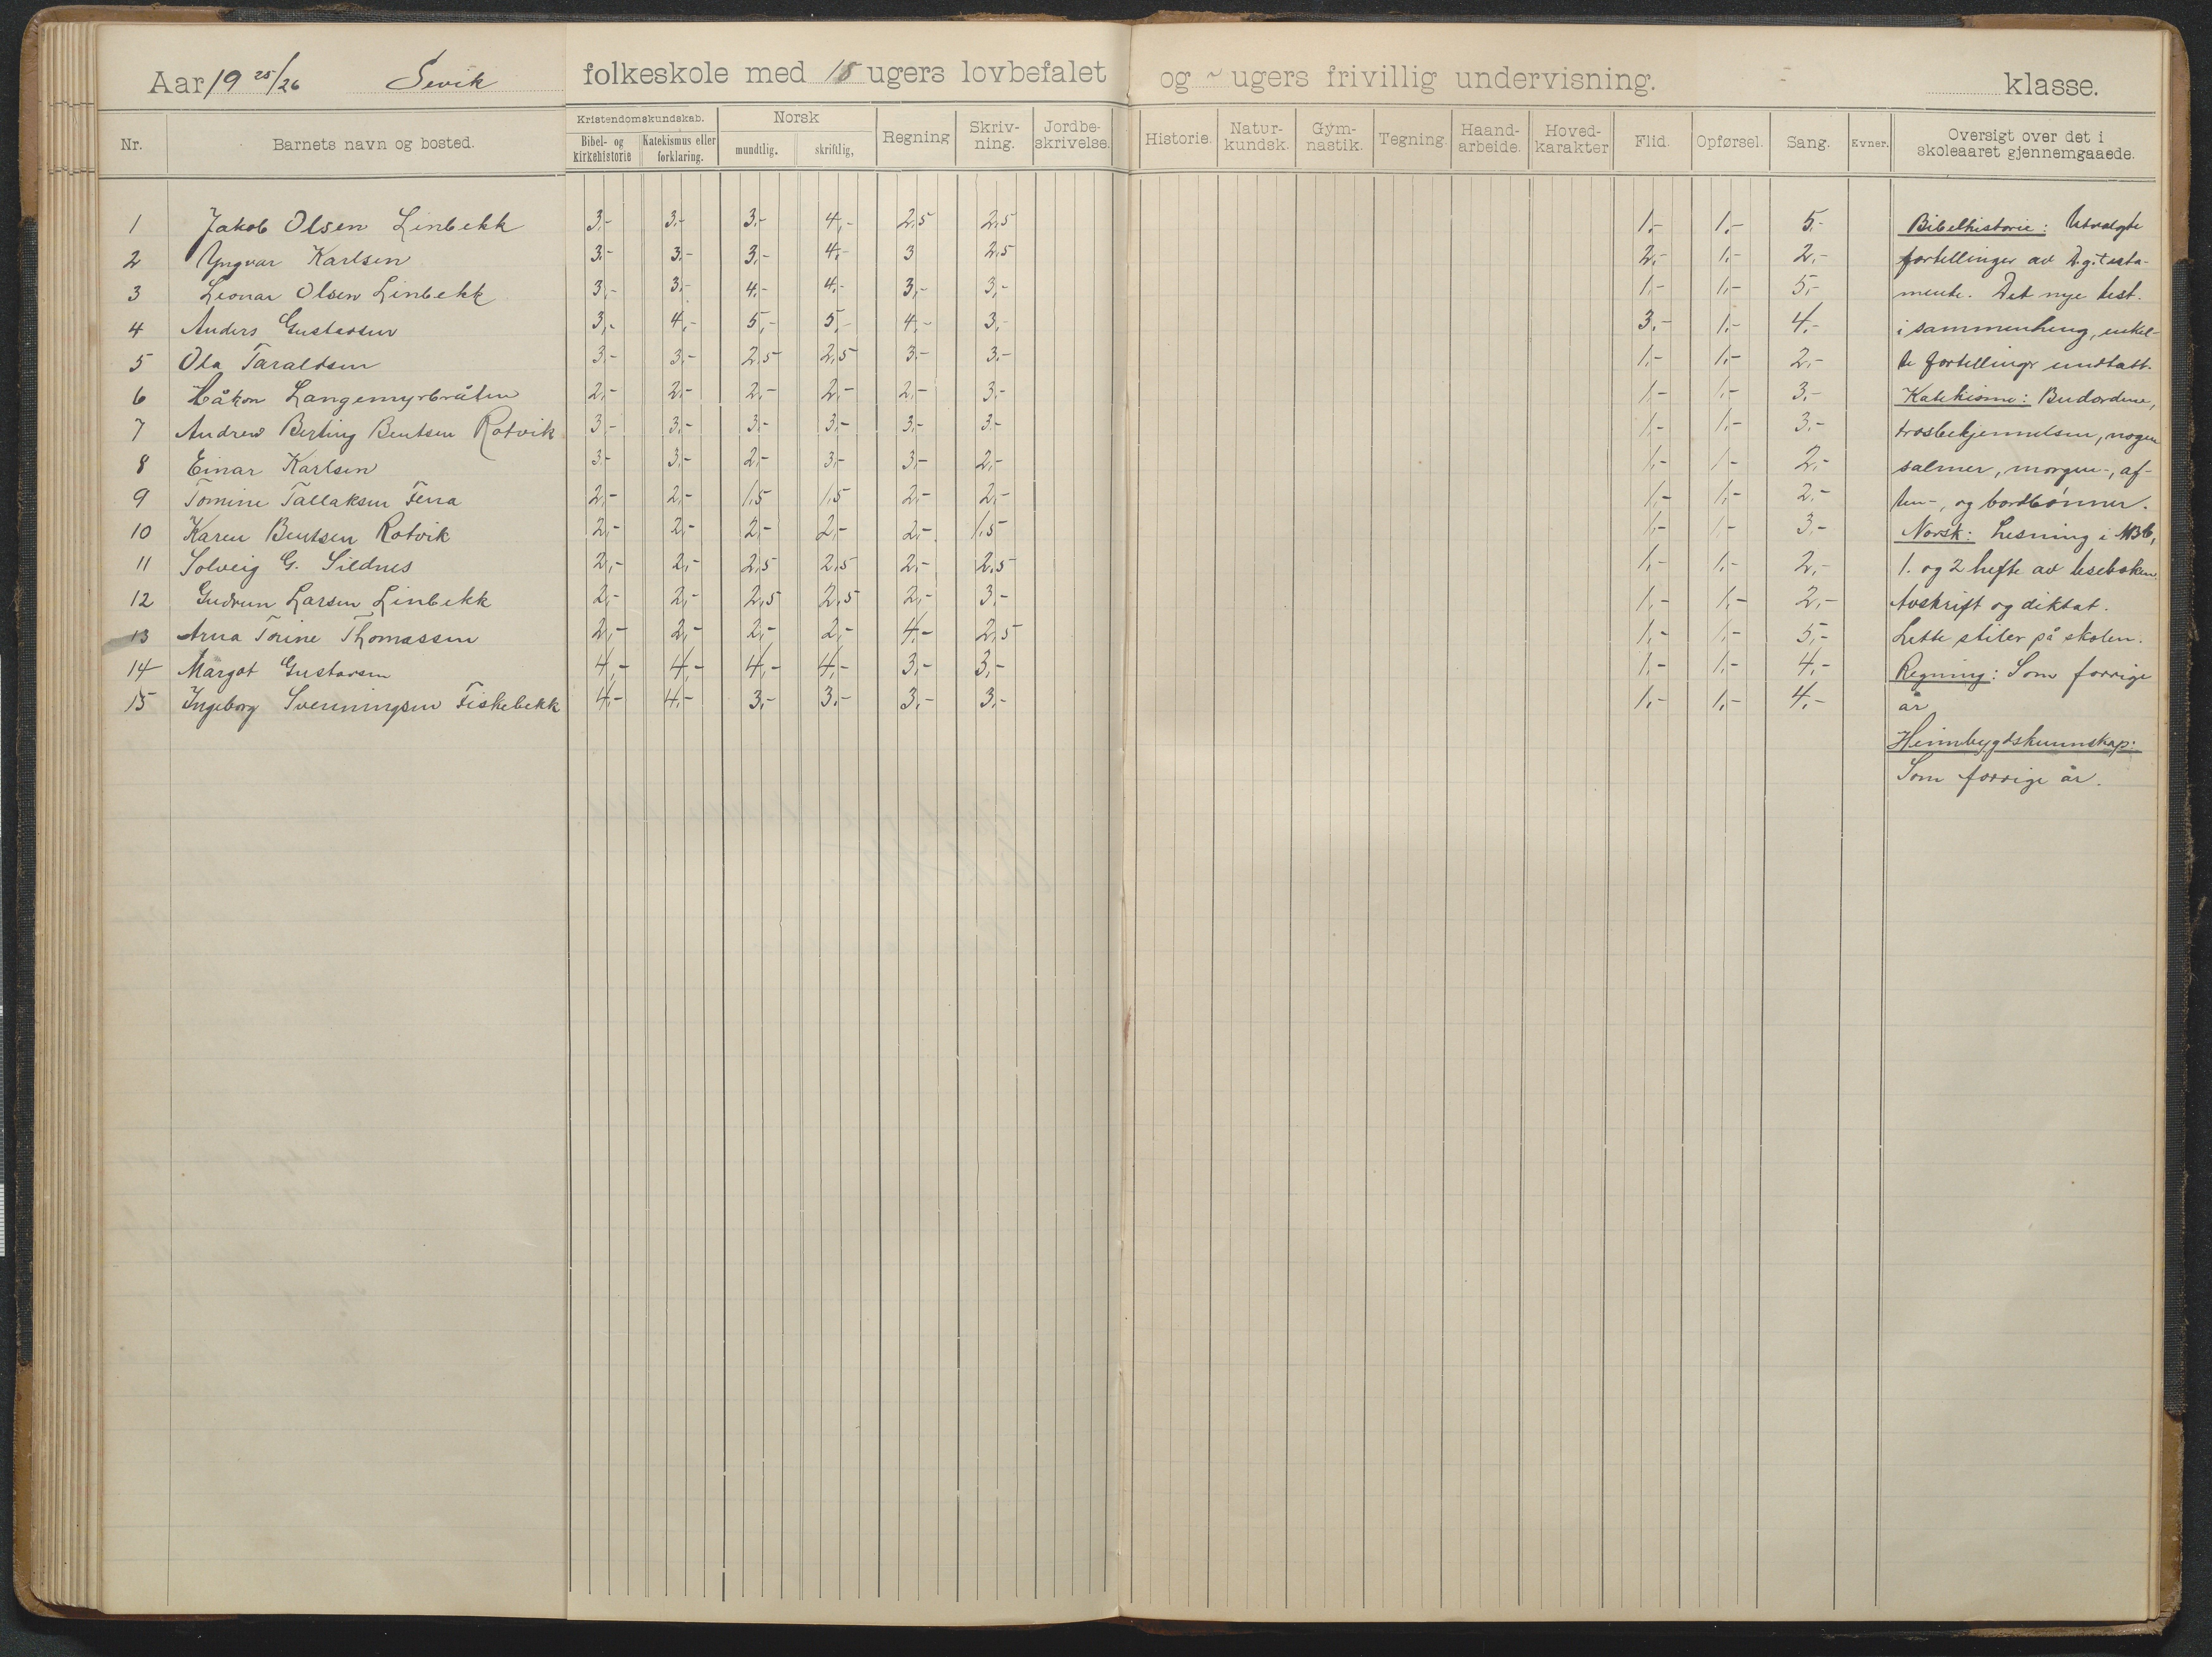 Aar 19 25/26 Sevik folkeskole med 18 ugers lovbefalet og ~ ugers frivillig undervisning. klasse.
Nr. Barnets navn og bosted. Kristendomskundskab. Bibel- og kirkehistorie Katekismus eller forklaring. Norsk mundtlig. skriftlig, Regning Skriv-ning. Jordbe-skrivelse. Historie. Natur-kundsk. Gym-nastik. Tegning. Haand-arbeide. Hoved-karakter Flid. Opførsel. Sang. Evner. Oversigt over det i skoleaaret gjennemgaaede.
1 Jakob Olsen Linbekk 3,- 3,- 3,- 4,- 2,5 2,5 1,- 1,- 5,- Bibelhistorie: Utvalgte
2 Yngvar Karlsen 3,- 3,- 3,- 4,- 3 2,5 2,- 1,- 2,- fortellinger av D.g.testa-
3 Leonar Olsen Linbekk 3,- 3,- 4,- 4,- 3,- 3,- 1,- 1,- 5,- mente. Det nye test.
4 Anders Gustavsen 3,- 4,- 5,- 5,- 4,- 3,- 3,- 1,- 4,- i sammenheng, enkel-
5 Ola Taraldsen 3,- 3,- 2,5 2,5 3,- 3,- 1,- 1,- 2,- te fortellingr undtatt.
6 Håkon Langemyrbråten 2,- 2,- 2,- 2,- 2,- 3,- 1,- 1,- 3,- Katekisme: Budordene,
7 Andrew Berting Bentsen Rotvik 3,- 3,- 3,- 3,- 3,- 3,- 1,- 1,- 3,- trosbekjennelsen, nogen
8 Einar Karlsen 3,- 3,- 2,- 3,- 3,- 2,- 1,- 1,- 2,- salmer, morgen-, af-
9 Tomine Tallaksen Ferra 2,- 2,- 1,5 1,5 2,- 2,- 1,- 1,- 2,- ten-, og bordbønner.
10 Karen Bentsen Rotvik 2,- 2,- 2,- 2,- 2,- 1,5 1,- 1,- 3,- Norsk: Lesning i
11 Solveig G. Sildnes 2,- 2,- 2,5 2,5 2,- 2,5 1,- 1,- 2,- 1. og 2 hefte av leseboken
12 Gudrun Larsen Linbekk 2,- 2,- 2,5 2,5 2,- 3,- 1,- 1,- 2,- Avskrift og diktat.
13 Arna Torine Thomassen 2,- 2,- 2,- 2,- 4,- 2,5 1,- 1,- 5,- Lette stiler på skolen.
14 Margot Gustavsen 4,- 4,- 4,- 4,- 3,- 3,- 1,- 1,- 4,- Regning: Som forrige
15 Ingeborg Sveningsen Fiskebekk 4,- 4,- 3,- 3,- 3,- 3,- 1,- 1,- 4,- år
Heimbygdskunnskap:
Som forrige år.